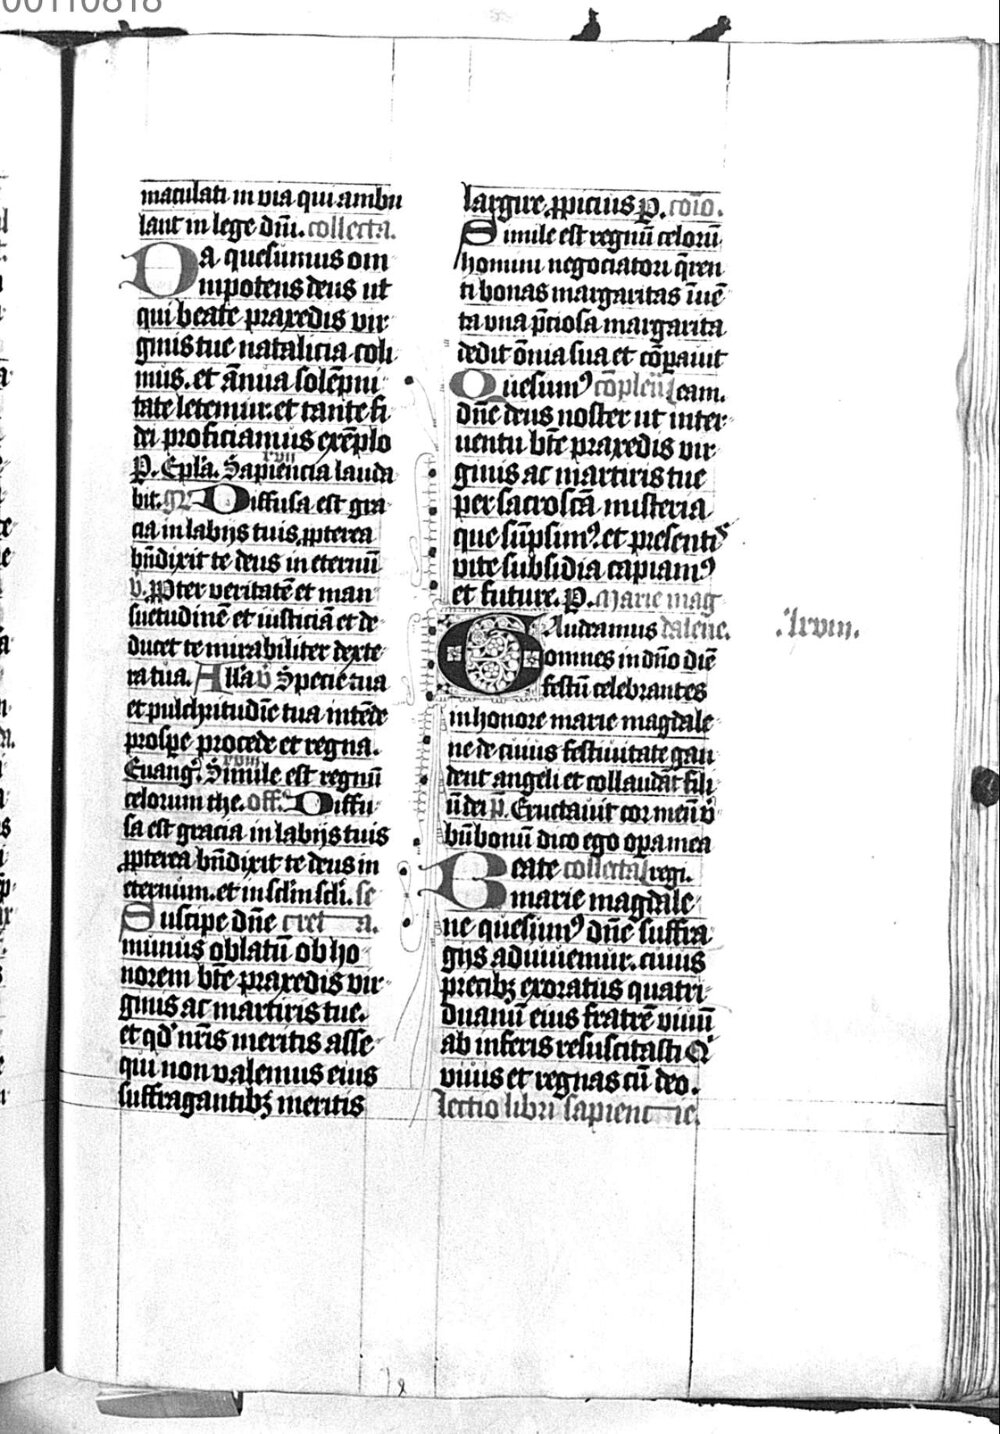 00110818
maculati in via qui ambu
lant in lege dñi. collecta.
Da quesumus om
nipotens deus ut
qui beate praxedis vir
ginis tue natalicia coli
mus. et ãnua solẽpni
tate letemur. et tante fi
dei proficiamus exẽplo
P. Epl'a. Sapiencia lauda
xvii
bit. Gr Diffusa est gra
cia in labijs tuis ꝓpterea
bñdixit te deus in eternũ
v. Ꝓpter veritatẽ et man
suetudinẽ et iusticiã et de
ducet te mirabiliter dexte
ra tua. All'a v Specie tua
et pulchritudĩe tua intẽde
prospe procede et regna.
Euangꝰ. Simile est regnũ
xviii
celorum the. off. Diffu
sa est gracia in labijs tuis
ꝓpterea bñdixit te deus in
eternum. et in sc̃lm sc̃li. se
Suscipe dñe cret a.
munus oblatũ ob ho
norem bt̃e praxedis vir
ginis ac martiris tue.
et qd' nr̃is meritis asse
qui non valemus eius
suffragantibꝫ meritis
largire ꝓpicius P. cõio.
Simile est regnũ celorũ
homini negociatori q̃ren
ti bonas margaritas ĩuẽ
ta una p̃ciosa margarita
dedit õnia sua et cõpauit
Quesumꝰ cõplen eam.
dñe deus noster ut inter
uentu bt̃e praxedis vir
ginis ac martiris tue
per sacrosc̃a misteria
que sũpsimꝰ. et presentis
vite subsidia capiamꝰ
et future. P. Marie mag
Gaudeamus dalene.
omnes in dño diẽ
festũ celebrantes
in honore marie magdale
ne de cuius festiuitate gau
dent angeli et collaudãt fili
ũ dei p̃. Eructauit cor meũ v̾
bũ bonũ dico ego opa mea
Beate collecta regi.
marie magdale
ne quesumꝰ dñe suffra
gijs adiuuemur. cuius
precibꝫ exoratus quatri
duanũ eius fratrẽ viuũ
ab inferis resuscitasti Q'
viuis et regnas cũ deo.
lectio libri sapiencie.